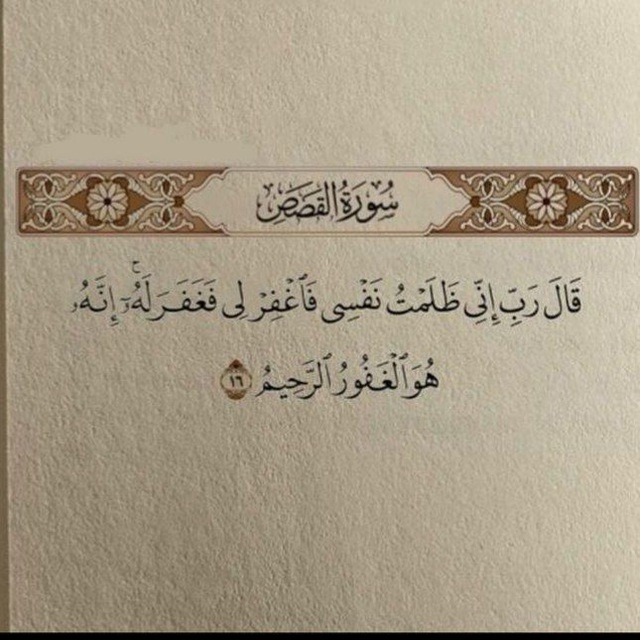 سُورَةُ القَصَصِ
قَالَ رَبِّ إِنِّي ظَلَمْتُ نَفْسِي فَٱغْفِرْ لِي فَغَفَرَ لَهُۥٓ ۚ إِنَّهُۥ
هُوَ ٱلْغَفُورُ ٱلرَّحِيمُ ١٦